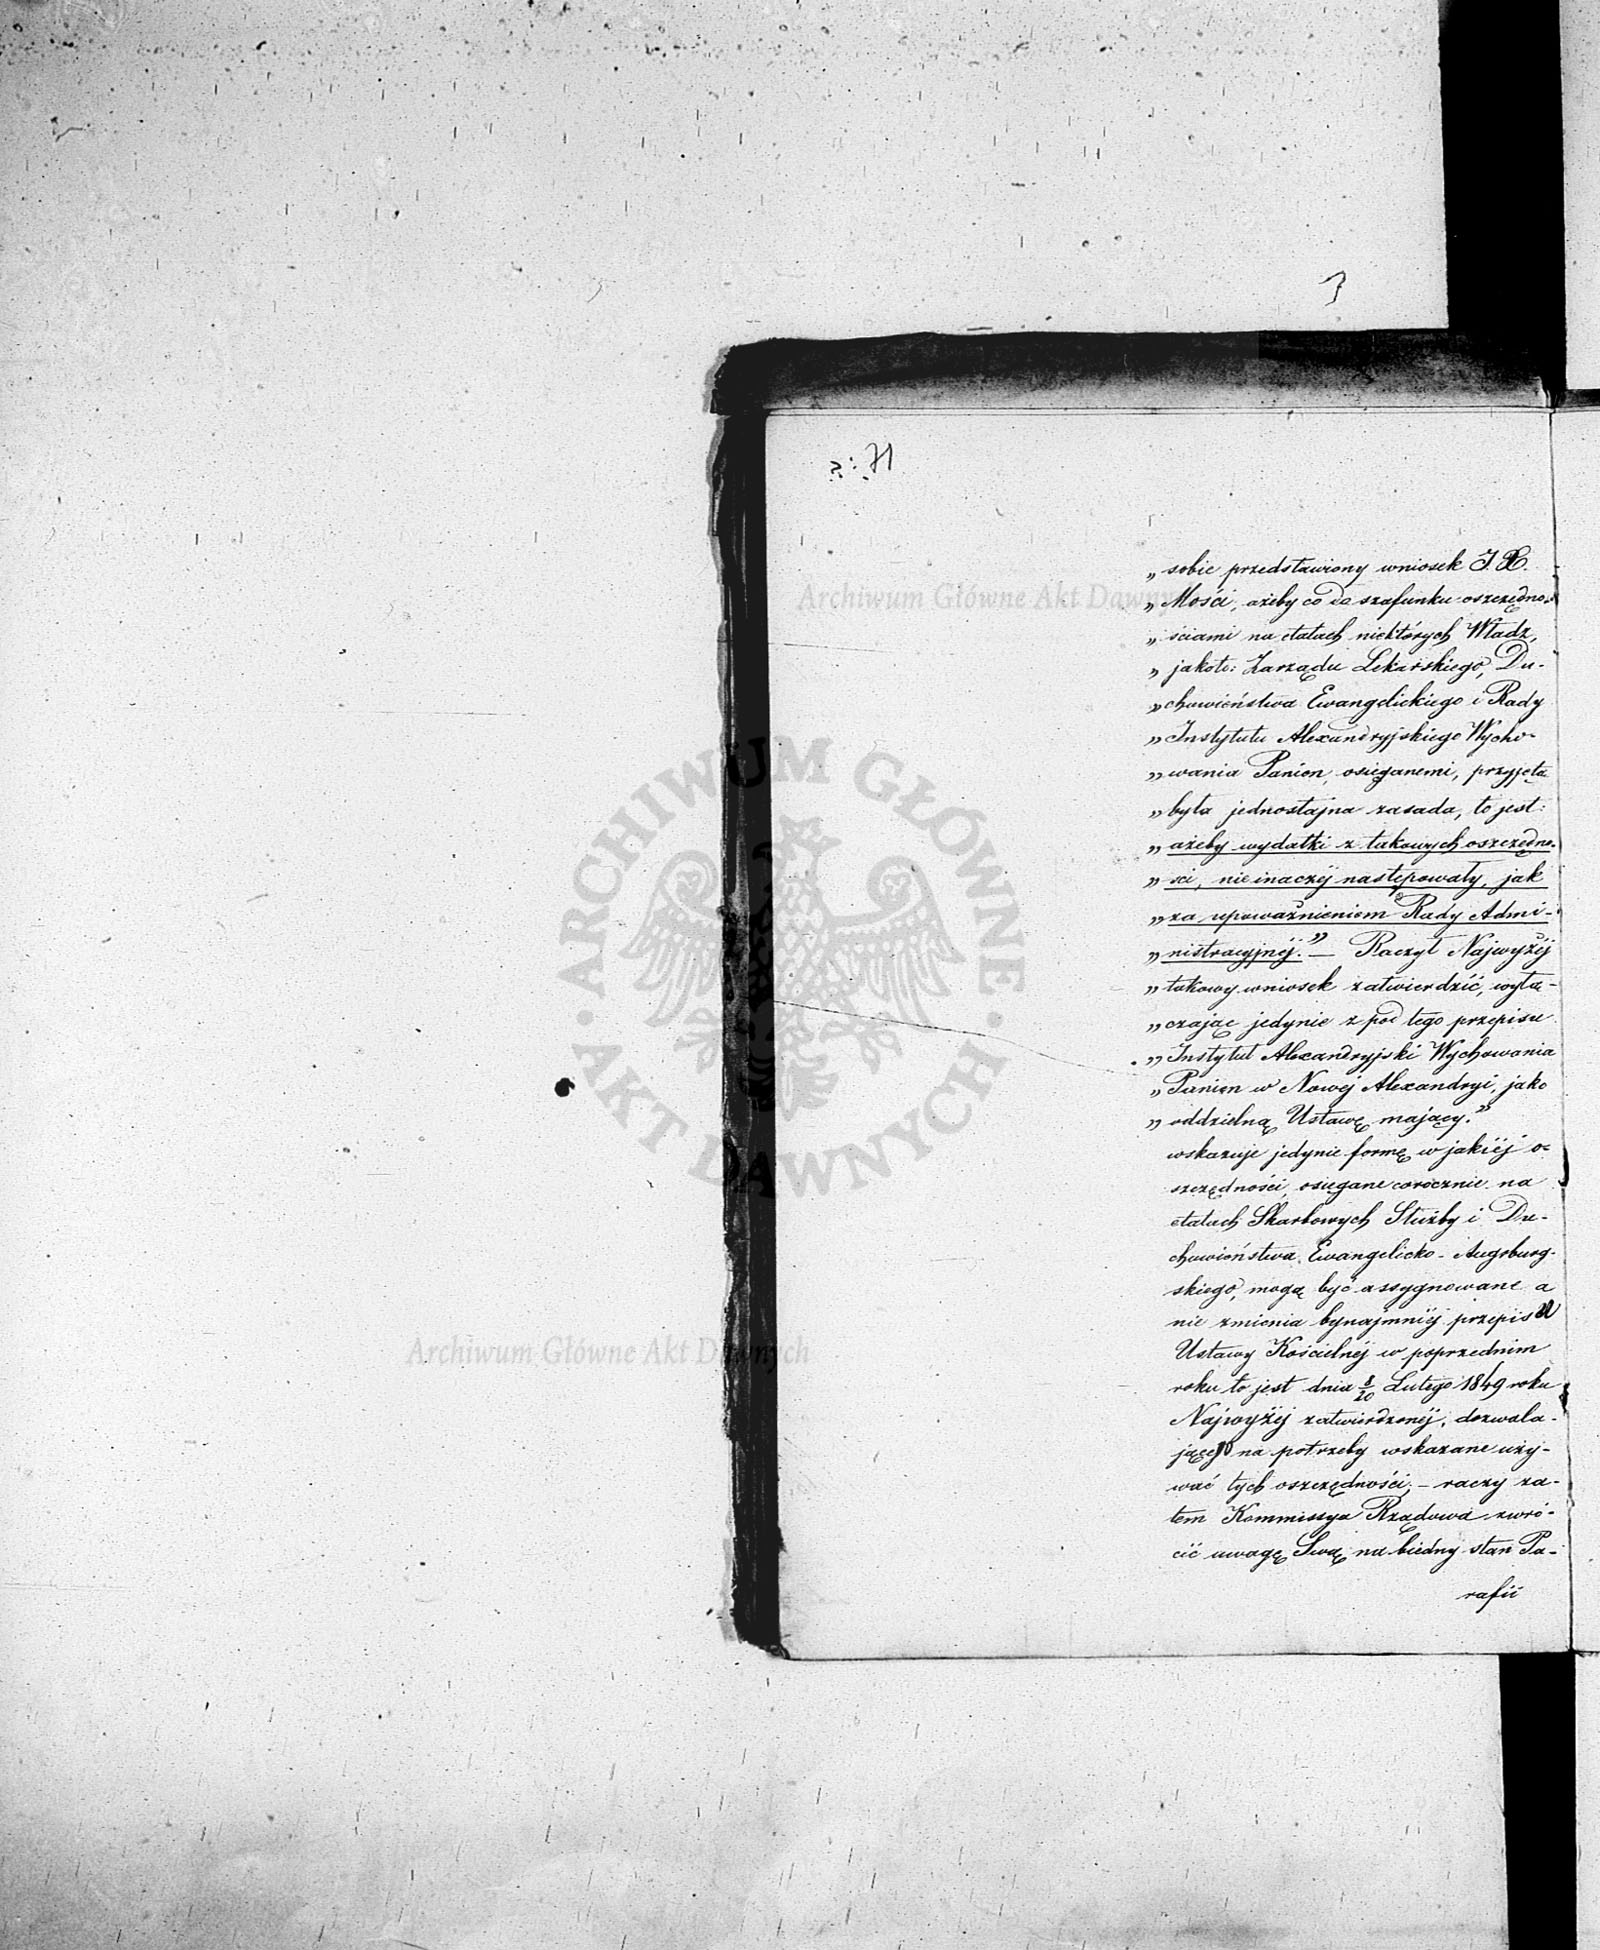 „ sobie przedstawiony wniosek J. X.
„ Mości, ażeby co do szafunku oszczędno-
„ ściami na etatach niektórych Władz,
„ jakoto: Zarządu Lekarskiego, Du-
„ chowieństwa Ewangelickiego i Rady
„ Instytutu Alexandryjskiego Wycho-
„ wania Panien, osięganemi, przyjęta
„ była jednostajna zasada, to jest:
„ ażeby wydatki z takowych oszczędno-
„ ści, nie inaczéj następowały, jak
„ za upoważnieniem Rady Admi-
„ nistracyjnéj.” — Raczył Najwyżéj
„ takowy wniosek zatwierdzić, wyłą-
„ czając jedynie z pod tego przepisu
„ Instytut Alexandryjski Wychowania
„ Panien w Nowéj Alexandryi, jako
„ oddzielną Ustawę mający.”
wskazuje jedynie formę w jakiéj o-
szczędności, osięgane corocznie na
etatach Skarbowych Służby i Du-
chowieństwa Ewangelicko-Augsburg-
skiego, mogą być assygnowane a
nie zmienia bynajmniéj przepisu
Ustawy Kościelnéj w poprzednim
roku to jest dnia 8/20 Lutego 1849 roku
Najwyżéj zatwierdzonéj, dozwala-
jącego na potrzeby wskazane uży-
wać tych oszczędności; — raczy za-
tem Kommissya Rządowa zwró-
cić uwagę Swą na biedny stan Pa-
rafii
ARCHIWUM GŁÓWNE · AKT DAWNYCH ·
Archiwum Główne Akt Dawnych
Archiwum Główne Akt Dawnych